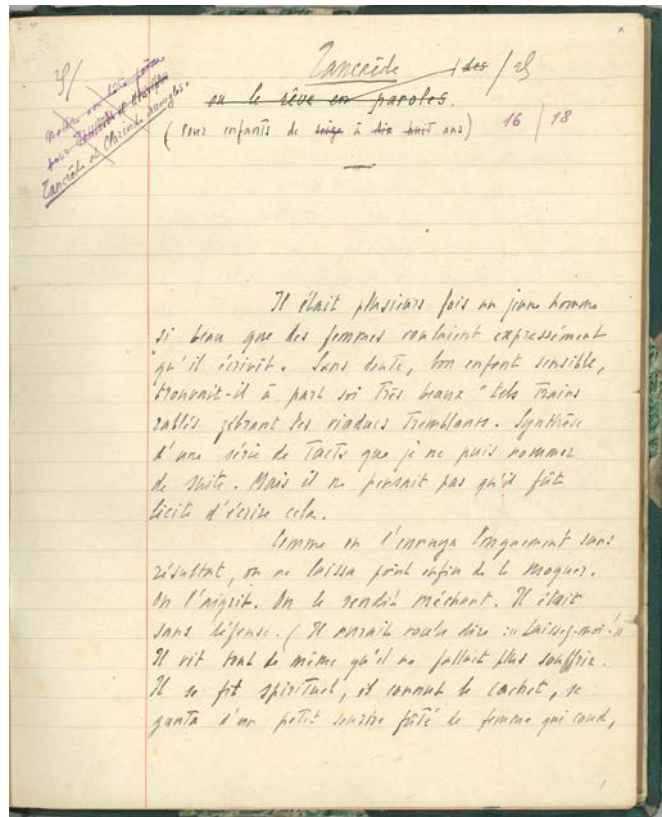 25/
Tancrède
/ des / 25
ou le rêve en paroles.
(pour enfants de seize à dix huit ans) 16 / 18
Tancrède et Clorinde aveugles.
Il était plusieurs fois un jeune homme
si beau que des femmes voulaient expressément
qu'il écrivit. Sans doute, bon enfant sensible,
trouvait-il à part soi très beaux "tels trains
rablés zébrant les viaducs tremblants. Synthèse
d'une série de tacts que je ne puis nommer
de suite. Mais il ne pensait pas qu'il fût
licite d'écrire cela.
Comme on l'ennuya longuement sans
résultat, on ne laissa point enfin de le moquer.
On l'aigrit. On le rendit méchant. Il était
sans défense. (Il aurait voulu dire : "Laissez-moi !"
Il vit tout de même qu'il ne fallait plus souffrir.
Il se fit spirituel, il connut le cachet, se
ganta d'un petit sourire fûté de femme qui coud,